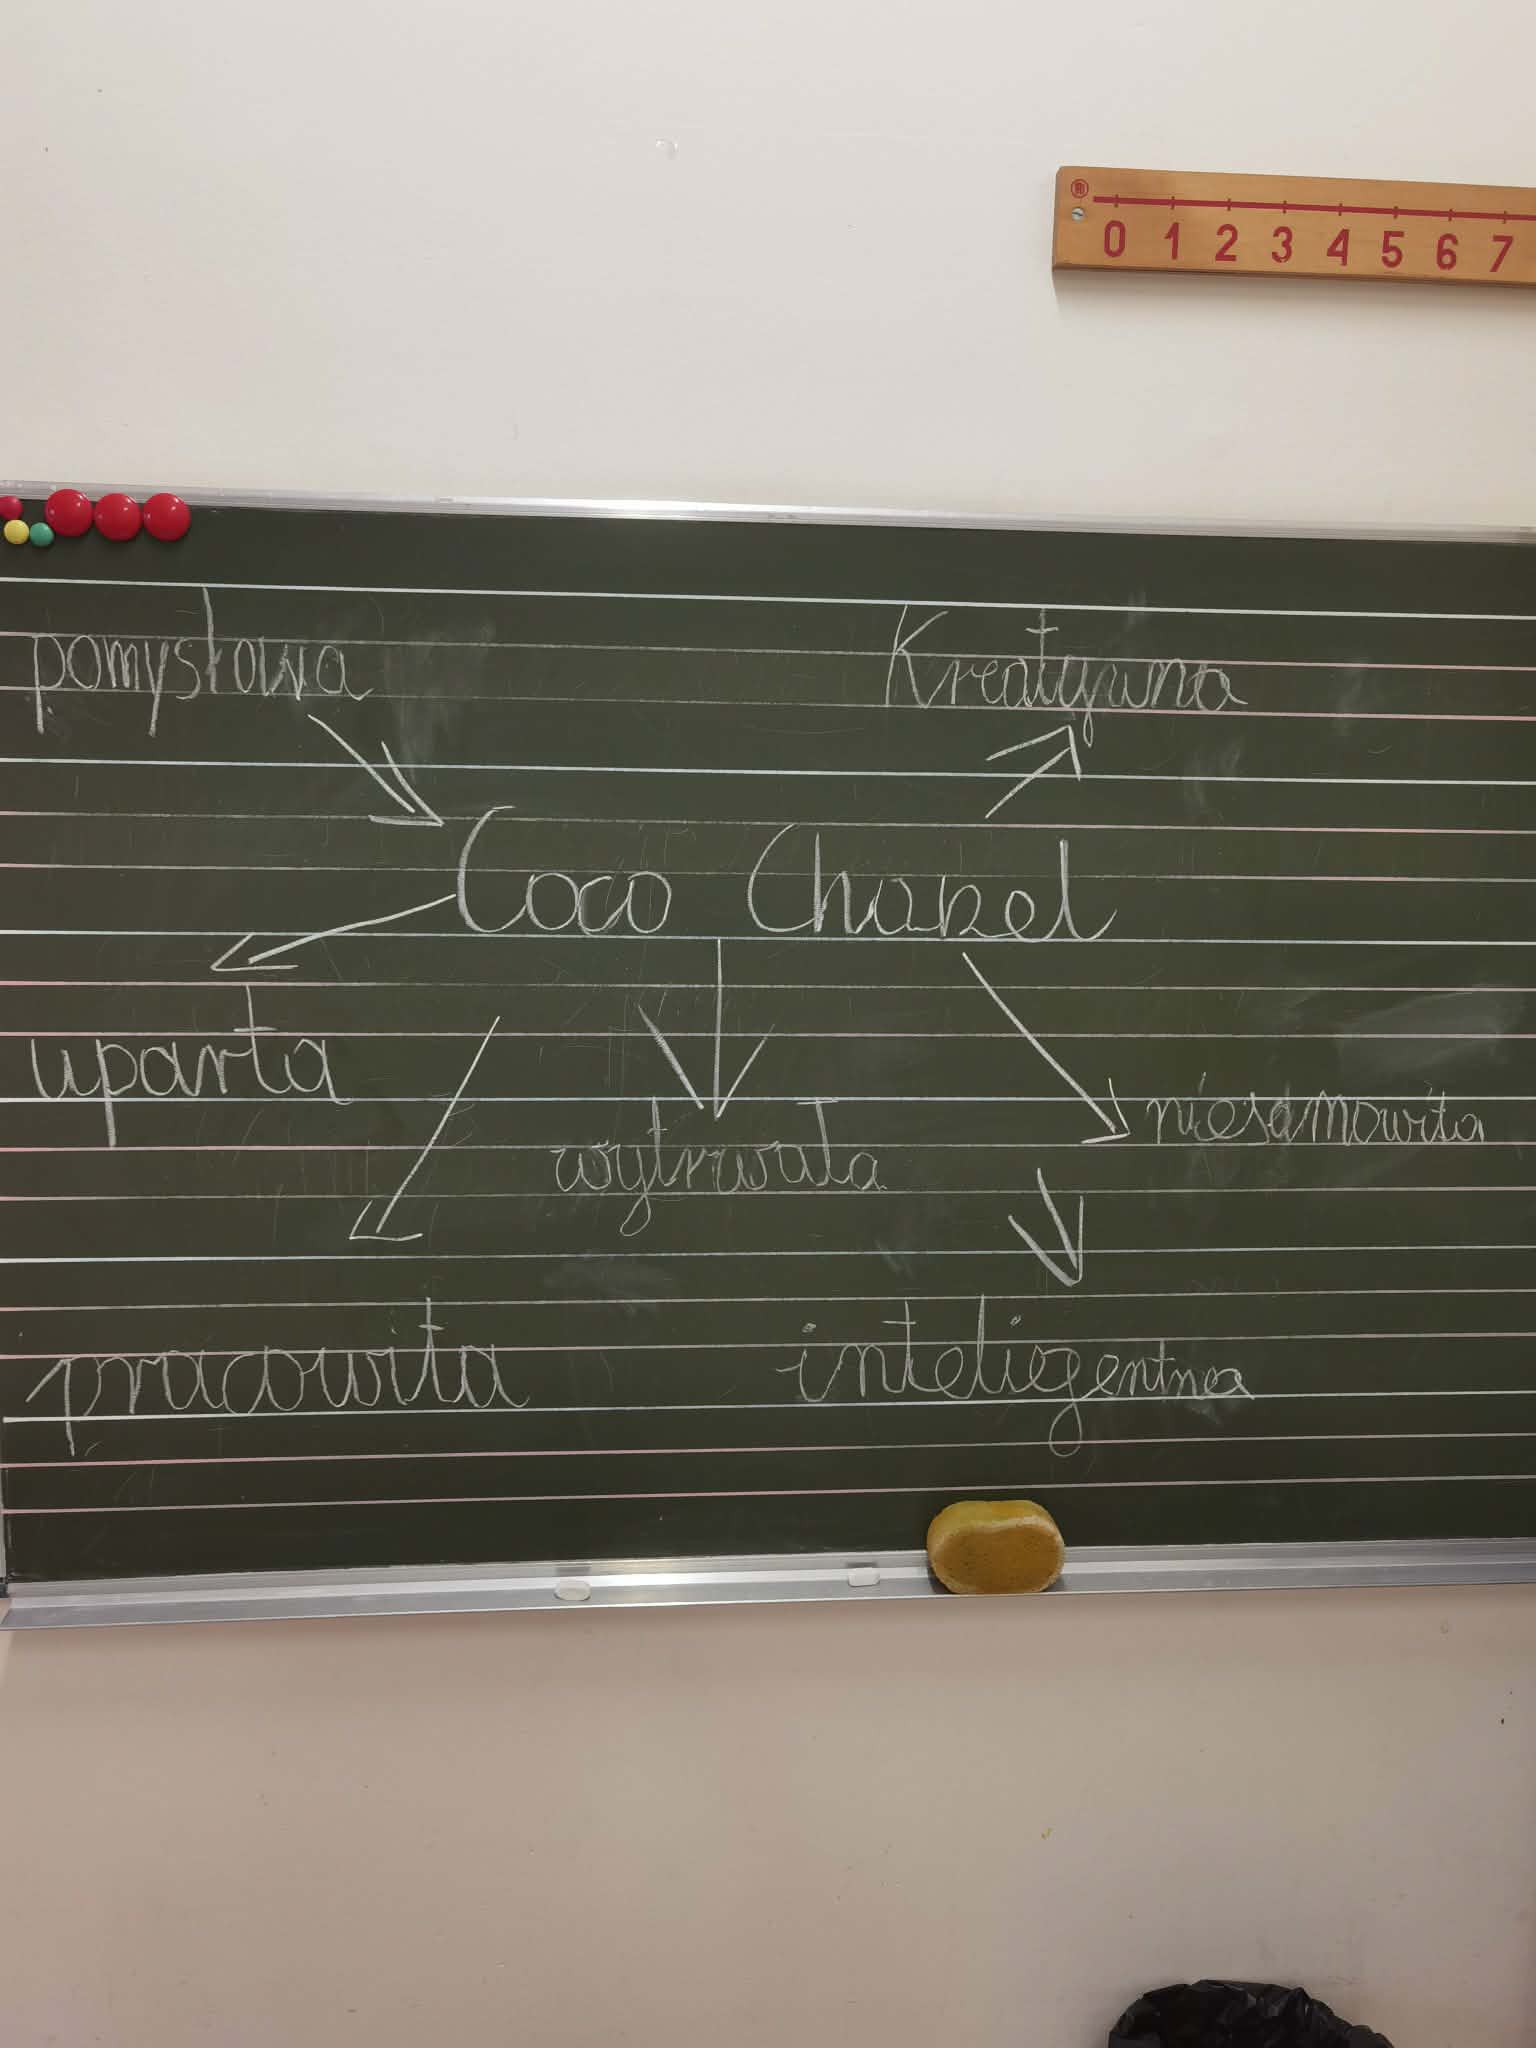 ® 0 1 2 3 4 5 6 7
pomysłowa Kreatywna
Coco Chanel
uparta
wytrwała niesamowita
pracowita inteligentna